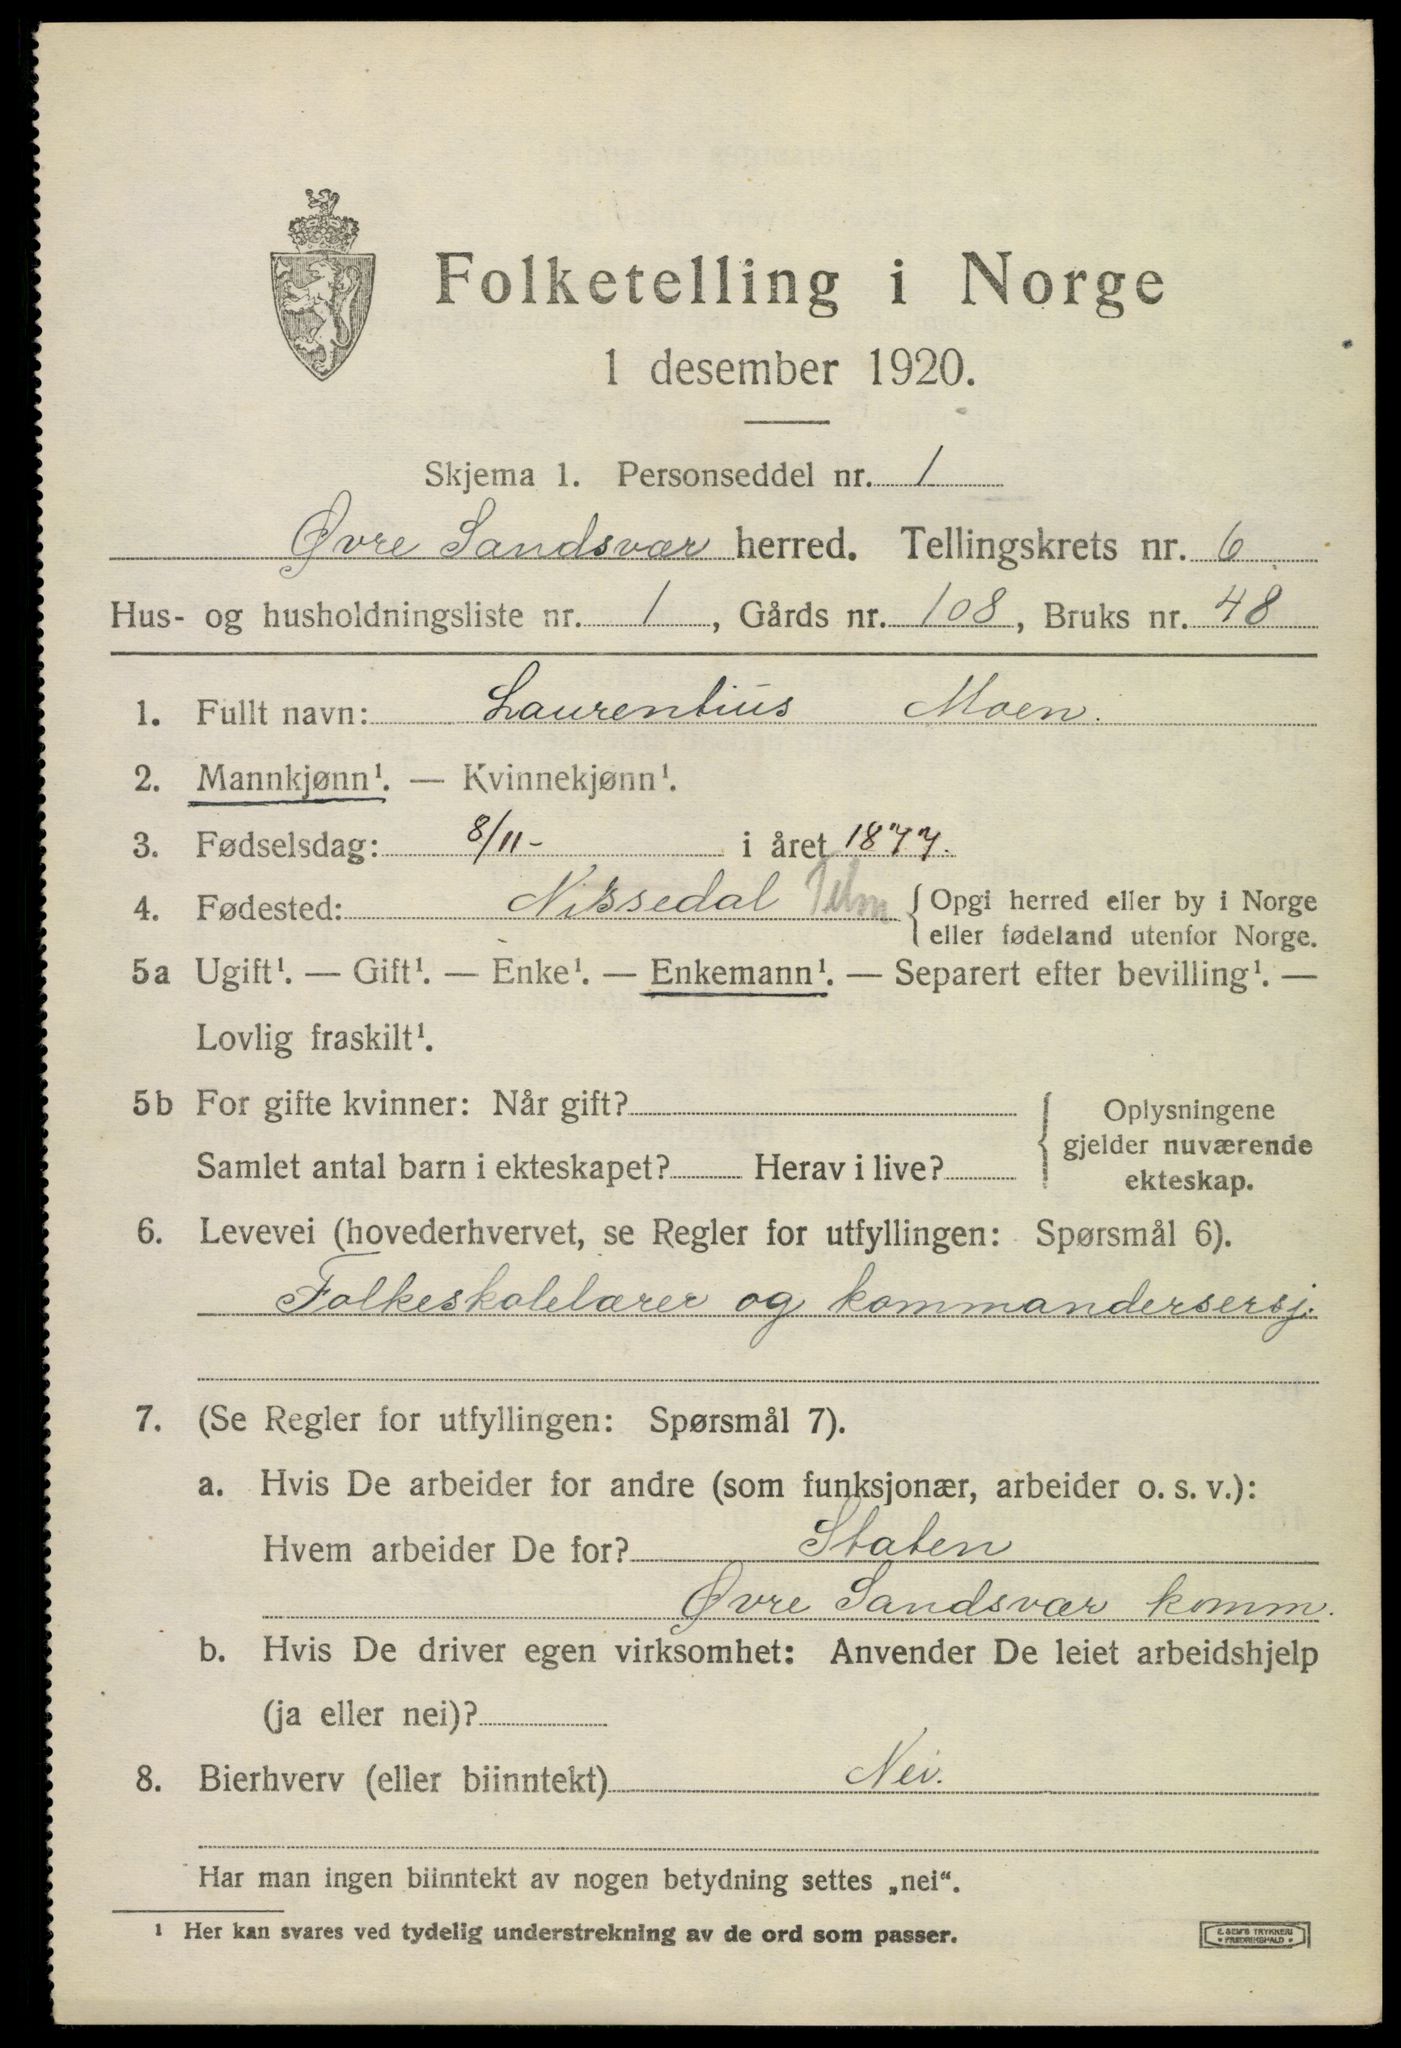 Folketelling i Norge
1 desember 1920.
Skjema 1. Personseddel nr. 1
Øvre Sandsvær herred. Tellingskrets nr. 6
Hus- og husholdningsliste nr. 1, Gårds nr. 108, Bruks nr. 48
1. Fullt navn: Laurentius Moen.
2. Mannkjønn¹. — Kvinnekjønn¹.
3. Fødselsdag: 8/11- i året 1877.
4. Fødested: Nissedal Telm { Opgi herred eller by i Norge
eller fødeland utenfor Norge.
5a Ugift¹. — Gift¹. — Enke¹. — Enkemann¹. — Separert efter bevilling¹. —
Lovlig fraskilt¹.
5b For gifte kvinner: Når gift?
Samlet antal barn i ekteskapet? Herav i live?
{ Oplysningene
gjelder nuværende
ekteskap.
6. Levevei (hovederhvervet, se Regler for utfyllingen: Spørsmål 6).
Folkeskolelærer og kommandersersj.
7. (Se Regler for utfyllingen: Spørsmål 7).
a. Hvis De arbeider for andre (som funksjonær, arbeider o. s. v.):
Hvem arbeider De for? Staten
Øvre Sandsvær komm.
b. Hvis De driver egen virksomhet: Anvender De leiet arbeidshjelp
(ja eller nei)?
8. Bierhverv (eller biinntekt) Nei.
Har man ingen biinntekt av nogen betydning settes „nei“.
¹ Her kan svares ved tydelig understrekning av de ord som passer.
E. SEM'S TRYKKERI
FREDRIKSHALD